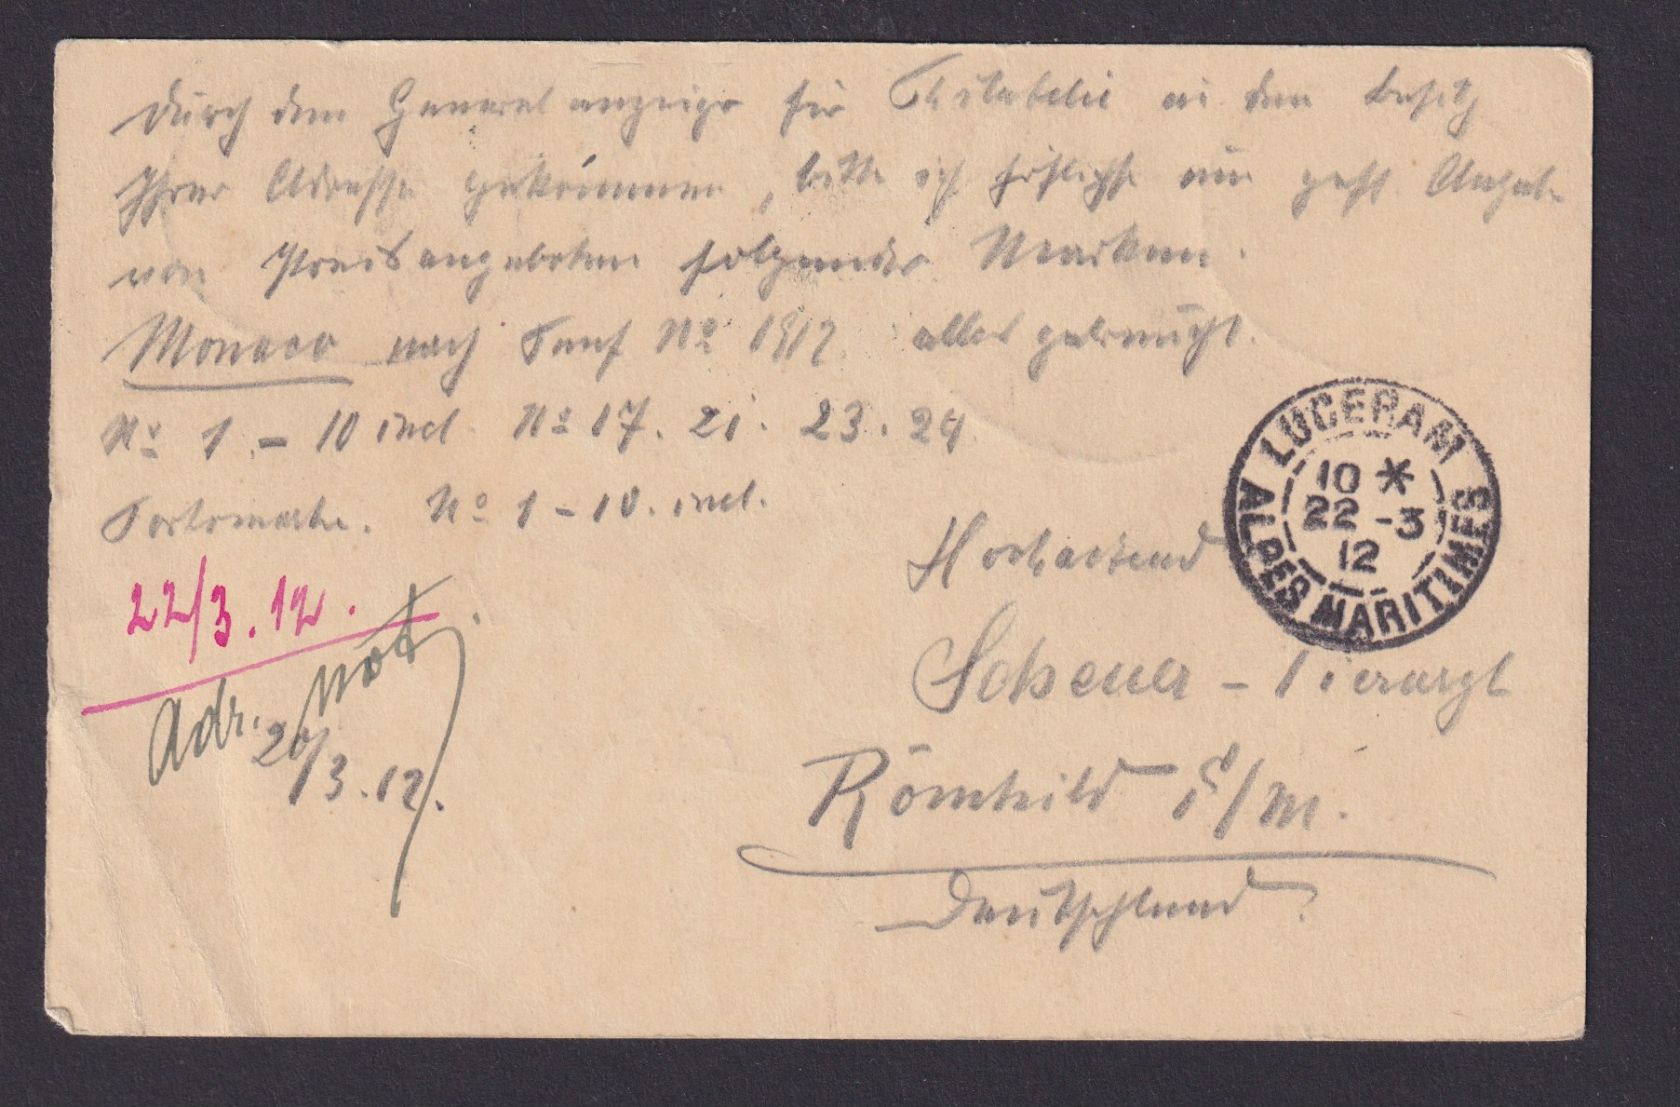 Durch den Generalanzeiger für Philatelie in den Besitz
Ihrer Adresse gekommen, bitte ich höflichst um gefl. Angabe
von Preisangeboten folgender Marken.
Monaco nach Senf No 1912. alles gebraucht.
No 1 - 10 incl. No 17. 21. 23. 24
Portomarken. No 1 - 10. incl.
Hochachtend
Scheuer - Tierarzt
Römhild S/M.
Deutschland.
22/3. 12.
Adr. not.
20/3. 12.
LUCERAM
10 *
22 -3
12
ALPES MARITIMES